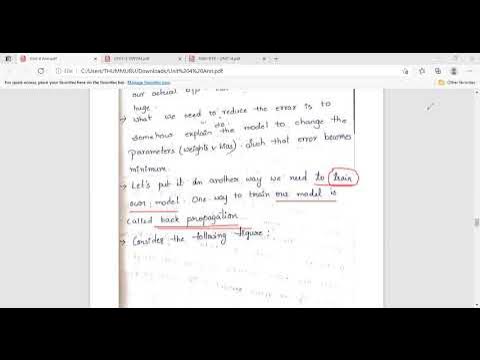 Unit 4 Ann.pdf
C:/Users/THUMMURU/Downloads/Unit%204%20Ann.pdf
For quick access, place your favorites here on the favorites bar. Manage favorites now
our actual
huge.
→ what we need to reduce the error is to
somehow explain the model to change the
parameters (weights & bias). Such that error becomes
minimum.
→ Let's put it in another way we need to train
our model. One way to train our model is
called back propagation
→ Consider the following figure: